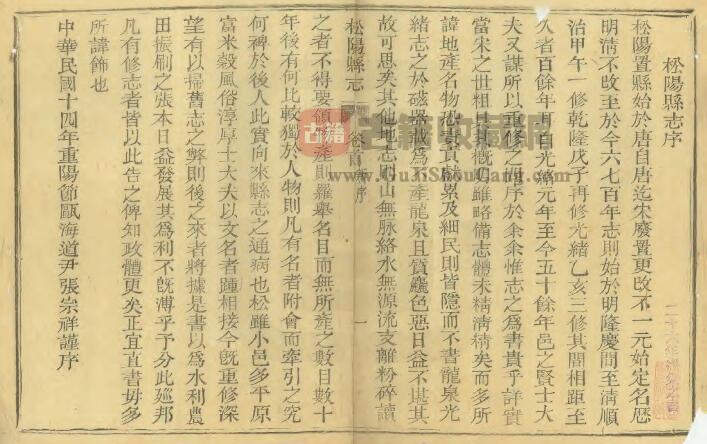 松陽縣志序
松陽置縣始於唐自唐迄宋廢置更改不一元始定名歷
明清不改至於今六七百年志則始於明隆慶間至清順
治甲午一修乾隆戊子再修光緒乙亥三修其間相距至
久者百餘年再自光緒元年至今五十餘年邑之賢士大
夫又謀所以重修之問序於余余惟志之為書貴乎詳實
當宋之世粗具其概明雖略備志體未精清精矣而多所
諱地產名物恐責貢獻累及細民則皆隱而不書龍泉光
緒志之於磁器誠為不產龍泉且質麤色惡日益不堪其
故可思矣其他地志則山無脉絡水無源流支離粉碎讀
松陽縣志 卷首 新序 一
之者不得要領物產則羅舉名目而無所產之數目數十
年後有何比較獨於人物則凡有名者附會而牽引之究
何裨於後人此實向來縣志之通病也松雖小邑多平原
富米穀風俗淳厚士大夫以文名者踵相接今旣重修深
望有以掃舊志之弊則後之來者將據是書以為水利農
田振刷之張本日益發展其為利不旣溥乎予分此邦
凡有修志者皆以此告之俾知政體更矣正宜直書毋多
所諱飾也
中華民國十四年重陽節甌海道尹張崇祥謹序
古籍
古籍收藏网
www.GuJiShouCang.com